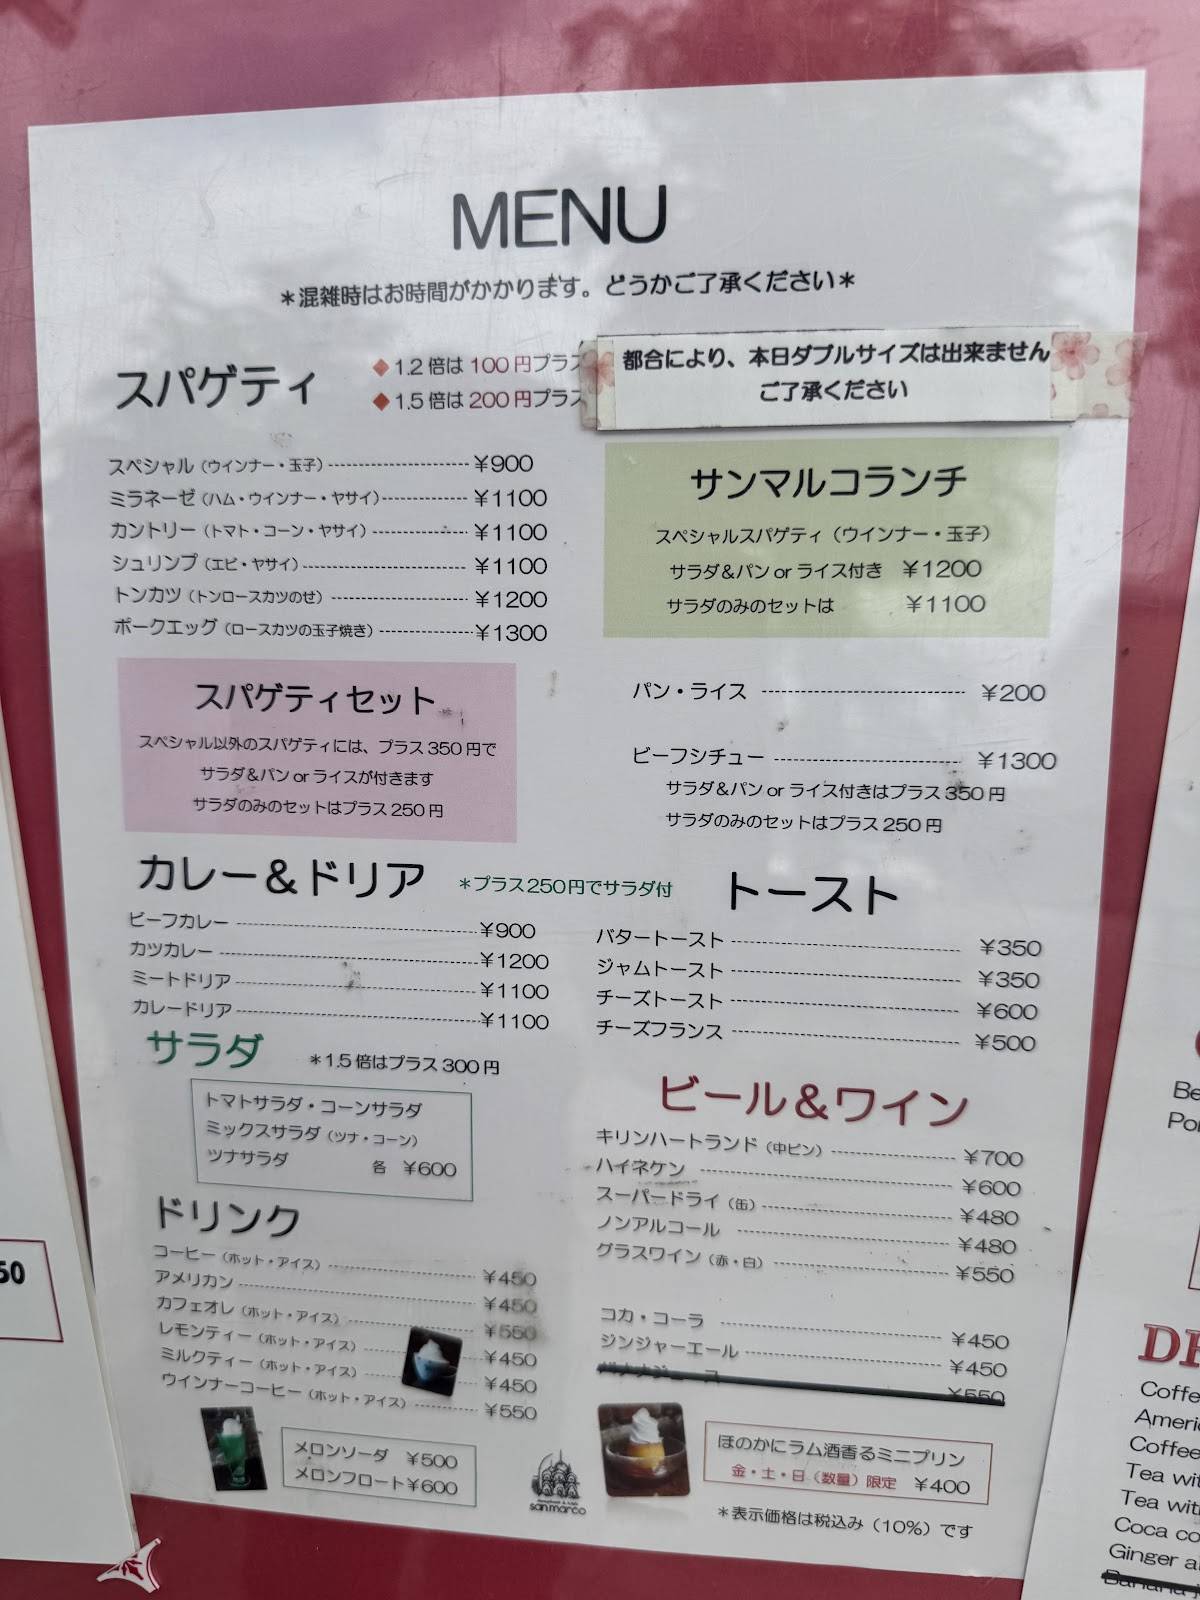 MENU
＊混雑時はお時間がかかります。どうかご了承ください＊
スパゲティ
◆1.2倍は100円プラス
◆1.5倍は200円プラス
都合により、本日ダブルサイズは出来ません
ご了承ください
スペシャル（ウインナー・玉子） ¥900
ミラネーゼ（ハム・ウインナー・ヤサイ） ¥1100
カントリー（トマト・コーン・ヤサイ） ¥1100
シュリンプ（エビ・ヤサイ） ¥1100
トンカツ（トンロースカツのせ） ¥1200
ポークエッグ（ロースカツの玉子焼き） ¥1300
サンマルコランチ
スペシャルスパゲティ（ウインナー・玉子）
サラダ＆パン or ライス付き ¥1200
サラダのみのセットは ¥1100
スパゲティセット
スペシャル以外のスパゲティには、プラス350円で
サラダ＆パン or ライスが付きます
サラダのみのセットはプラス250円
パン・ライス ¥200
ビーフシチュー ¥1300
サラダ＆パン or ライス付きはプラス350円
サラダのみのセットはプラス250円
カレー＆ドリア ＊プラス250円でサラダ付
ビーフカレー ¥900
カツカレー ¥1200
ミートドリア ¥1100
カレードリア ¥1100
トースト
バタートースト ¥350
ジャムトースト ¥350
チーズトースト ¥600
チーズフランス ¥500
サラダ ＊1.5倍はプラス300円
トマトサラダ・コーンサラダ
ミックスサラダ（ツナ・コーン）
ツナサラダ 各 ¥600
ビール＆ワイン
キリンハートランド（中ビン） ¥700
ハイネケン ¥600
スーパードライ（缶） ¥480
ノンアルコール ¥480
グラスワイン（赤・白） ¥550
ドリンク
コーヒー（ホット・アイス） ¥450
アメリカン ¥450
カフェオレ（ホット・アイス） ¥550
レモンティー（ホット・アイス） ¥450
ミルクティー（ホット・アイス） ¥450
ウインナーコーヒー（ホット・アイス） ¥550
コカ・コーラ ¥450
ジンジャーエール ¥450
バナナジュース ¥550
メロンソーダ ¥500
メロンフロート¥600
san marco
ほのかにラム酒香るミニプリン
金・土・日（数量）限定 ¥400
＊表示価格は税込み（10%）です
50
Be
Po
Coffe
Americ
Coffee
Tea wit
Tea wit
Coca co
Ginger a
Banana j